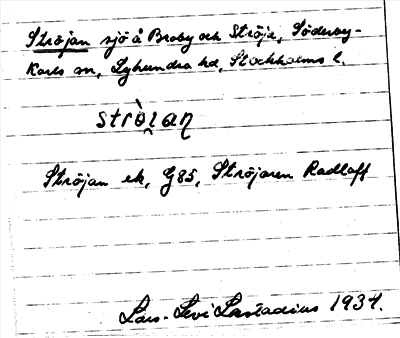 Ströjan sjö å Broby och Ströja, Söderby-
Karls sn, Lyhundra hd, Stockholms l.
strò̱ɩan
Ströjan ek, G85, Ströjaren Radloff
Lars-Levi Læstadius 1934.